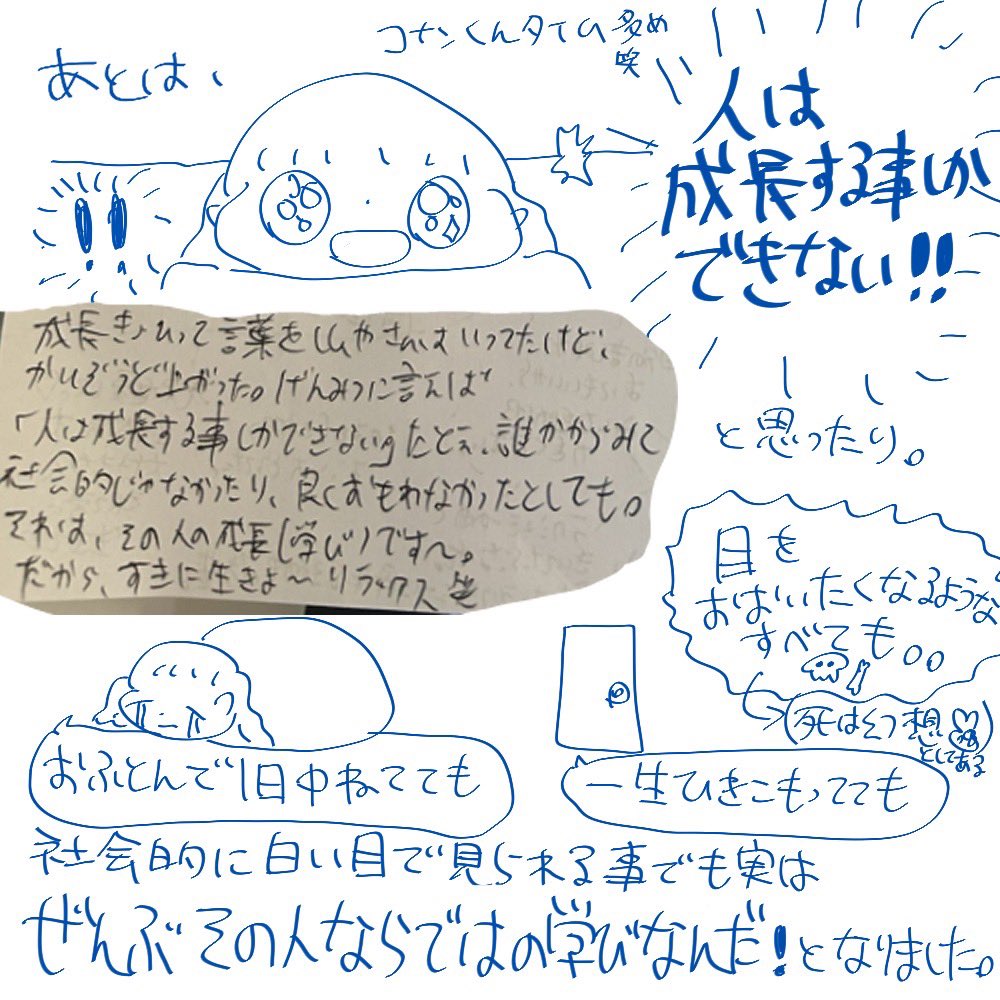 あとは、
コナンくんタイム多め
笑
!!
人は
成長する事しか
できない!!
と思ったり。
成長きょひって言葉をLilyさんはいってたけど、
かいぞうど上がった。げんみつに言えば
「人は成長する事しかできない」たとえ、誰かからみて
社会的じゃなかったり、良くおもわなかったとしても。
それは、その人の成長(学び)です〜。
だから、すきに生きよ〜リラックス笑
目を
おおいたくなるような
すべても。。
(死はげん想
としてある
おふとんで1日中ねてても
一生ひきこもってても
社会的に白い目で見られる事でも実は
ぜんぶその人ならではの学びなんだ!となりました。